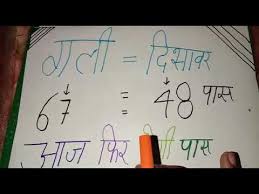 गली = दिसावर
67 = 48 पास
आज फिर पास